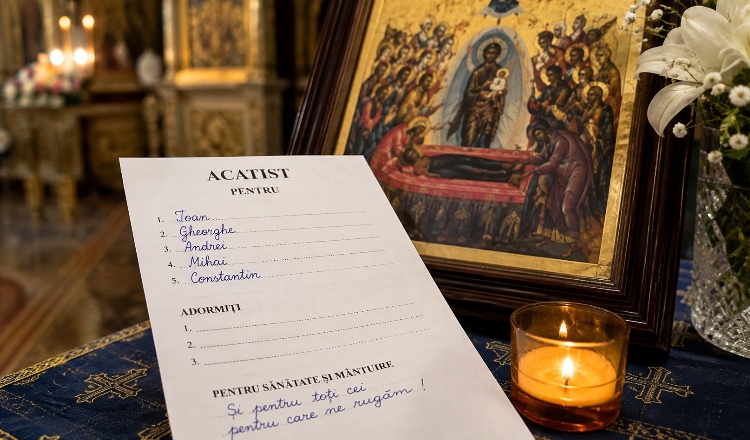 ACATIST
PENTRU
1. Ioan
2. Gheorghe
3. Andrei
4. Mihai
5. Constantin
ADORMIȚI
1.
2.
3.
PENTRU SĂNĂTATE ȘI MÂNTUIRE
Și pentru toți cei
pentru care ne rugăm !